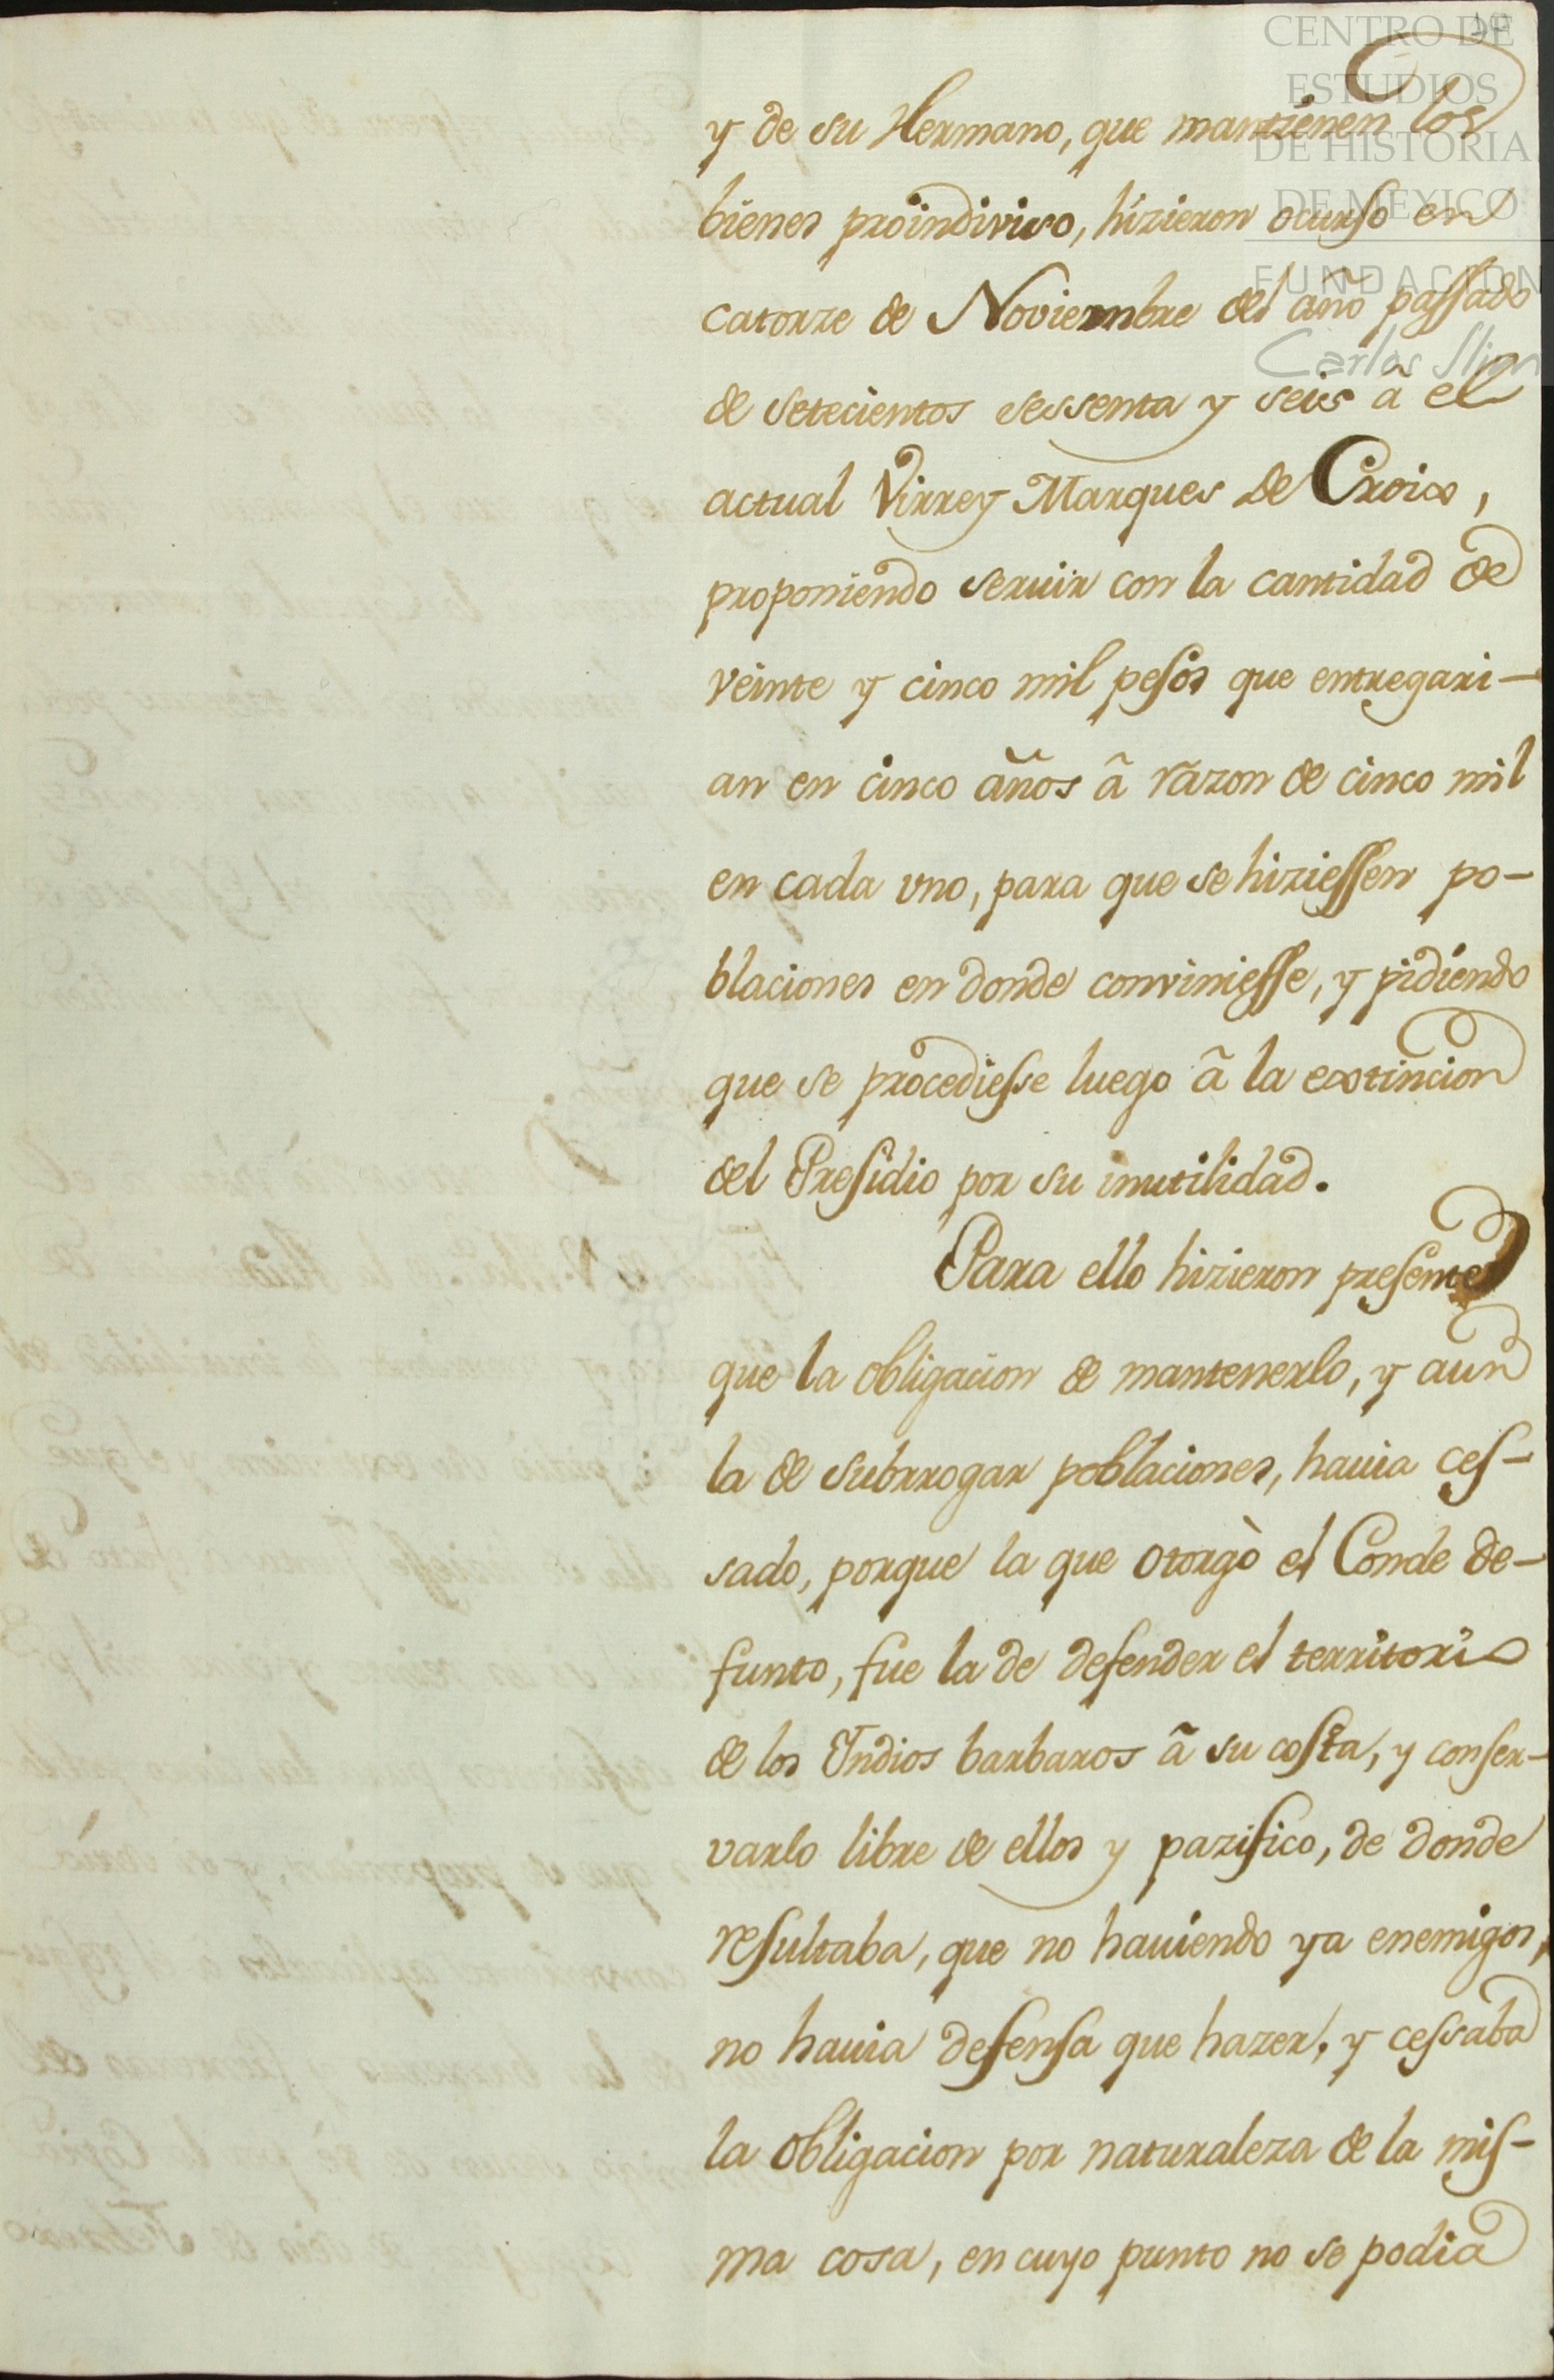 CENTRO DE
ESTUDIOS
DE HISTORIA
DE MEXICO
FUNDACIÓN
Carlos Slim
y de su Hermano, que mantienen los
bienes proindiviso, hizieron ocurso en
catorze de Noviembre del año passado
de setecientos sessenta y seis â el
actual Virrey Marques de Croix,
proponiendo seruir con la cantidad de
veinte y cinco mil pesos que entregari-
an en cinco años â razon de cinco mil
en cada vno, para que se hiziessen po-
blaciones en donde conviniesse, y pidiendo
que se procediesse luego â la extincion
del Presidio por su inutilidad.
Para ello hizieron presente
que la obligacion de mantenerlo, y aun
la de subrrogar poblaciones, hauia ces-
sado, porque la que otorgò el Conde de-
funto, fue la de defender el territorio
de los Indios barbaros â su costa, y conser-
varlo libre de ellos y pazifico, de donde
resultaba, que no hauiendo ya enemigos,
no hauia defensa que hazer, y cessaba
la obligacion por naturaleza de la mis-
ma cosa, en cuyo punto no se podia